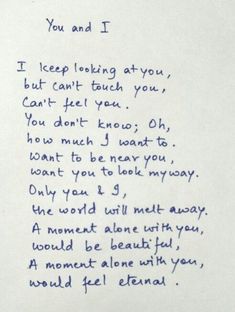 You and I
I keep looking at you,
but can't touch you,
Can't feel you.
You don't know; Oh,
how much I want to.
want to be near you,
want you to look my way.
Only you & I,
the world will melt away.
A moment alone with you,
would be beautiful,
A moment alone with you,
would feel eternal.